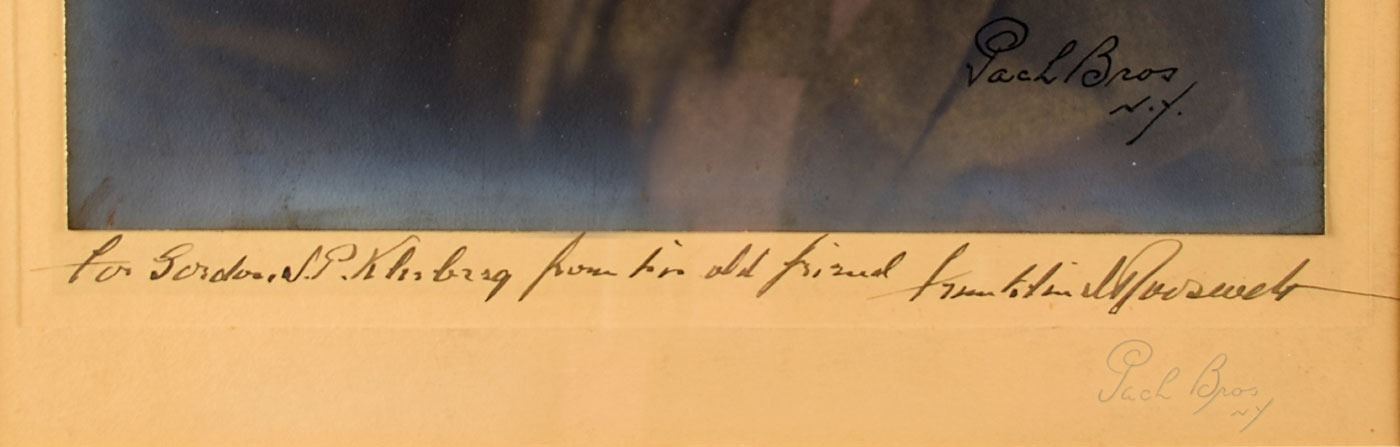 Pach Bros
N.Y.
For Gordon J.P. Kleeberg from his old friend Franklin D Roosevelt
Pach Bros
NY